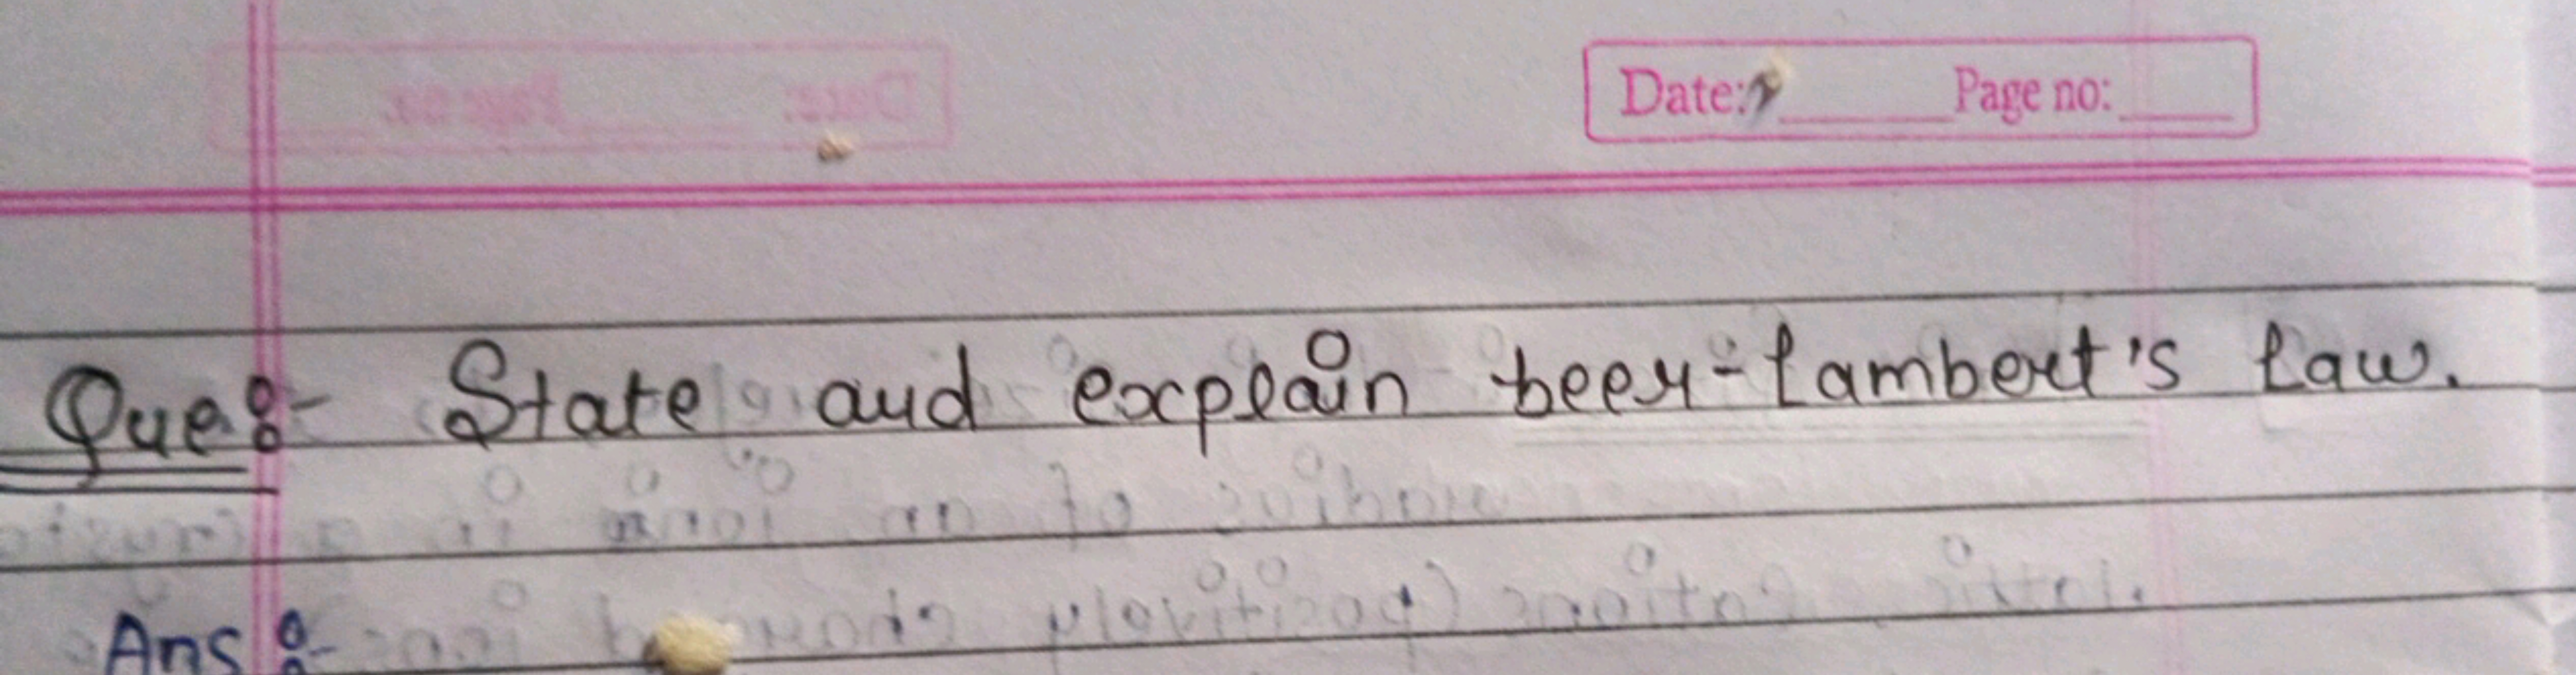 Date: Page no:
Que:- State and explain beer-lambert's law.
Ans:-